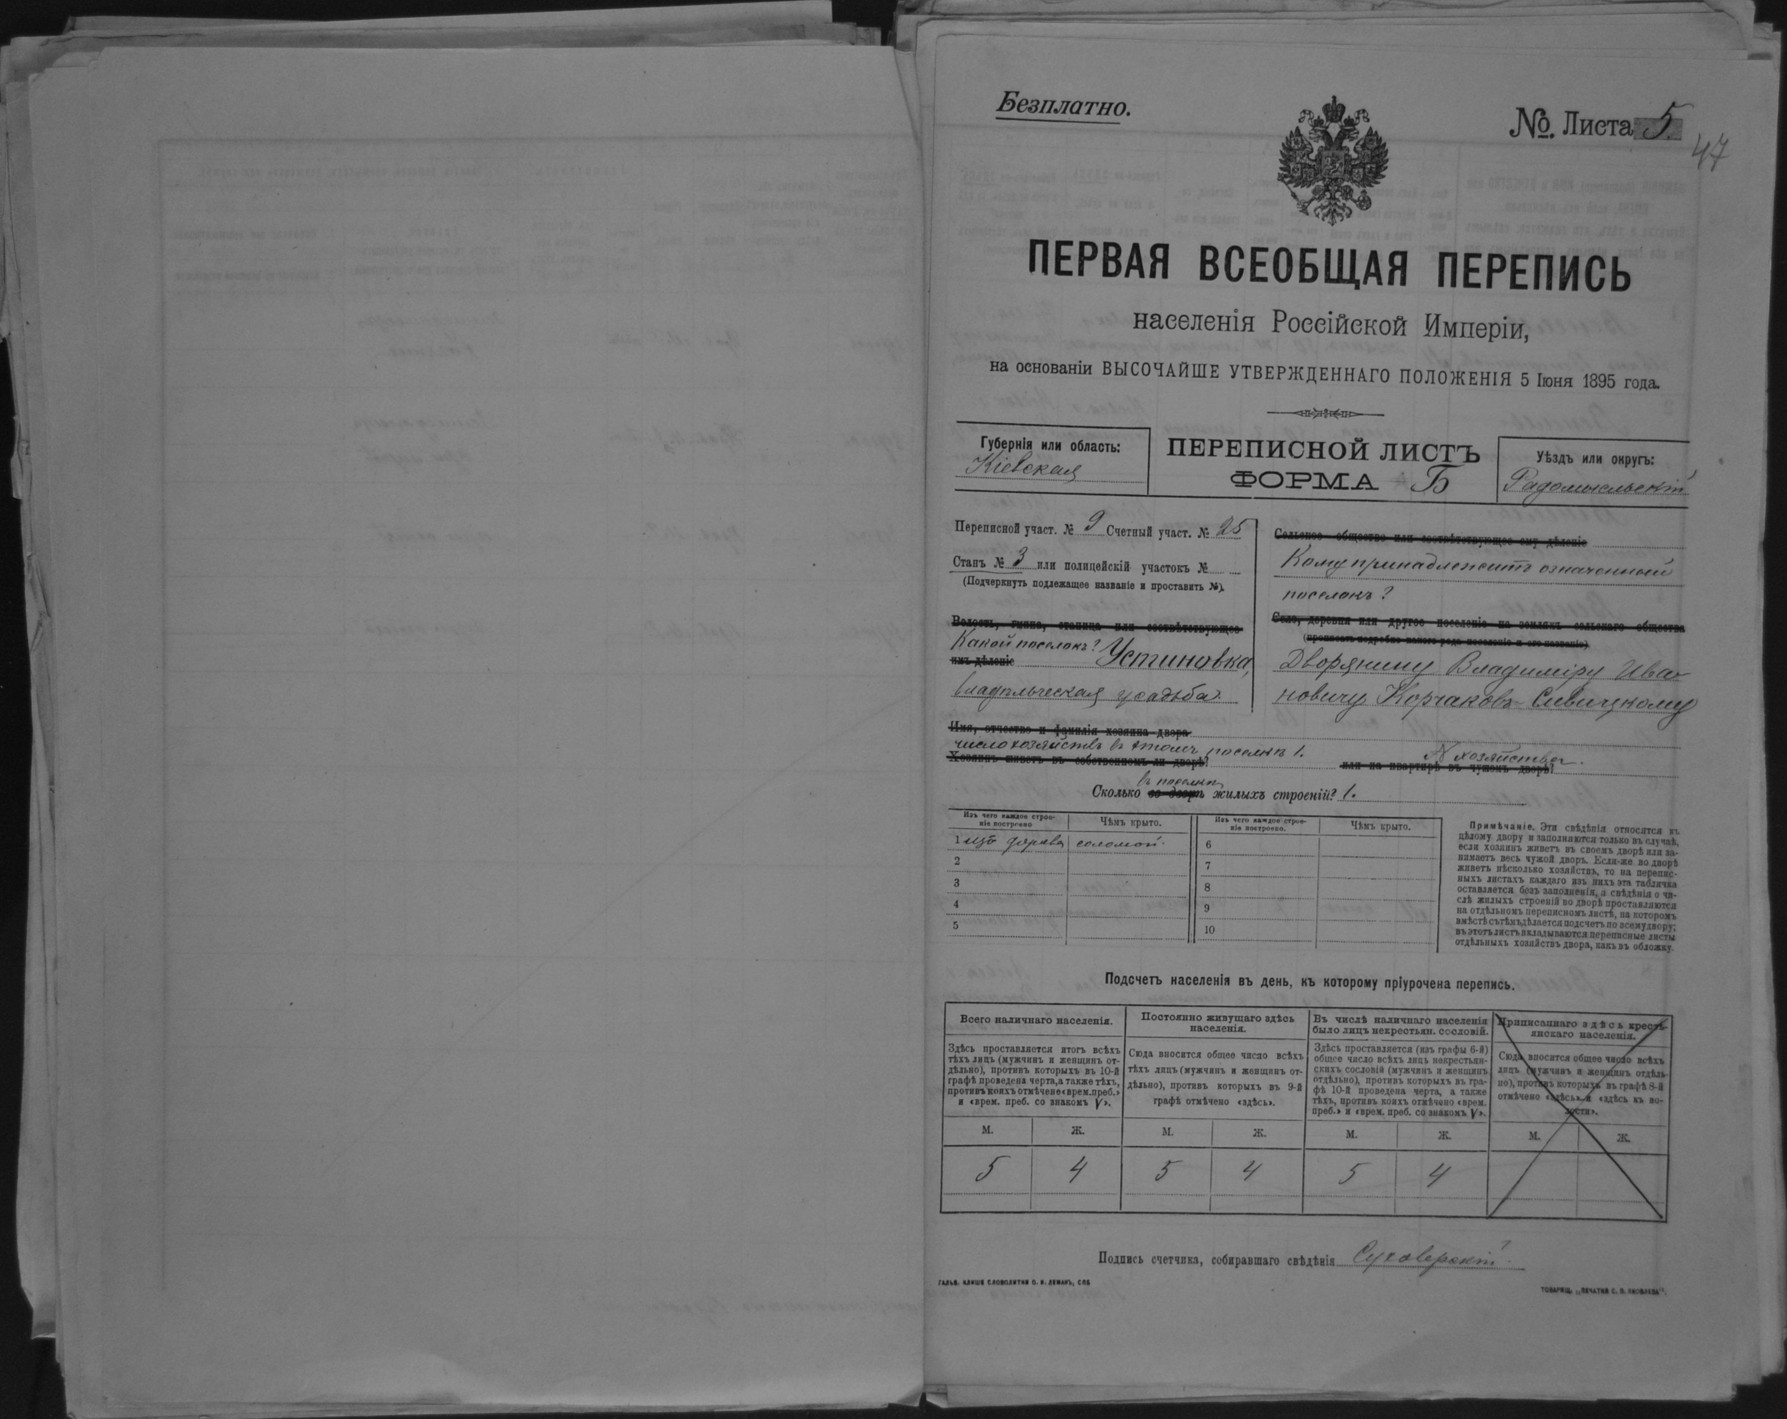 Безплатно.
№. Листа 5.
47
ПЕРВАЯ ВСЕОБЩАЯ ПЕРЕПИСЬ
населенія Россійской Имперіи,
на основаніи ВЫСОЧАЙШЕ УТВЕРЖДЕННАГО ПОЛОЖЕНІЯ 5 Іюня 1895 года.
Губернія или область:
Кіевская
ПЕРЕПИСНОЙ ЛИСТЪ
ФОРМА Б
Уѣздъ или округъ:
Радомысльскій
Переписной участ. № 9 Счетный участ. № 25
Станъ № 3 или полицейскій участокъ №
(Подчеркнуть подлежащее названіе и проставить №).
Волость, гмина, станица или соотвѣтствующее
Какой поселокъ? Устиновка,
имъ дѣленіе
владѣльческая усадьба
Сельское общество или соотвѣтствующее ему дѣленіе
Кому принадлежитъ означенный
поселокъ?
Село, деревня или другое поселеніе на земляхъ сельскаго общества
(прописать подробно какого рода поселеніе и его названіе)
Дворянину Владиміру Ива-
новичу Корчаковъ-Сивицкому
Имя, отчество и фамилія хозяина двора
число хозяйствъ въ этомъ поселкѣ 1. № хозяйства.
Хозяинъ живетъ въ собственномъ ли дворѣ? или на квартирѣ въ чужомъ дворѣ?
въ поселкѣ
Сколько во дворѣ жилыхъ строеній? 1.
Изъ чего каждое строе-
ніе построено
Чѣмъ крыто.
Изъ чего каждое строе-
ніе построено.
Чѣмъ крыто.
1 изъ дерева соломой. 6
2 7
3 8
4 9
5 10
Примѣчаніе. Эти свѣдѣнія относятся къ
цѣлому двору и заполняются только въ случаѣ,
если хозяинъ живетъ въ своемъ дворѣ или за-
нимаетъ весь чужой дворъ. Если-же во дворѣ
живетъ нѣсколько хозяйствъ, то на перепис-
ныхъ листахъ каждаго изъ нихъ эта табличка
оставляется безъ заполненія, а свѣдѣнія о чи-
слѣ жилыхъ строеній во дворѣ проставляются
на отдѣльномъ переписномъ листѣ, на которомъ
вмѣстѣ съ тѣмъ дѣлается подсчетъ по всему двору;
въ этотъ листъ вкладываются переписные листы
отдѣльныхъ хозяйствъ двора, какъ въ обложку.
Подсчетъ населенія въ день, къ которому пріурочена перепись.
Всего наличнаго населенія.
Здѣсь проставляется итогъ всѣхъ
тѣхъ лицъ (мужчинъ и женщинъ от-
дѣльно), противъ которыхъ въ 10-й
графѣ проведена черта, а также тѣхъ,
противъ коихъ отмѣчено «врем. преб.»
и «врем. преб. со знакомъ V».
Постоянно живущаго здѣсь
населенія.
Сюда вносится общее число всѣхъ
тѣхъ лицъ (мужчинъ и женщинъ от-
дѣльно), противъ которыхъ въ 9-й
графѣ отмѣчено «здѣсь».
Въ числѣ наличнаго населенія
было лицъ некрестьян. сословій.
Здѣсь проставляется (изъ графы 6-й)
общее число всѣхъ лицъ некрестьян-
скихъ сословій (мужчинъ и женщинъ
отдѣльно), противъ которыхъ въ гра-
фѣ 10-й проведена черта, а также
тѣхъ, противъ коихъ отмѣчено «врем.
преб.» и «врем. преб. со знакомъ V».
Приписаннаго здѣсь кресть-
янскаго населенія.
Сюда вносится общее число всѣхъ
лицъ (мужчинъ и женщинъ отдѣль-
но), противъ которыхъ въ графѣ 8-й
отмѣчено «здѣсь» и «здѣсь къ во-
лости».
М. Ж. М. Ж. М. Ж. М. Ж.
5 4 5 4 5 4
Подпись счетчика, собиравшаго свѣдѣнія Суховерскій.
ГАЛЬВ. КЛИШЕ СЛОВОЛИТНИ О. И. ЛЕМАНЪ, СПБ
ТОВАРИЩ. „ПЕЧАТНЯ С. П. ЯКОВЛЕВА“.